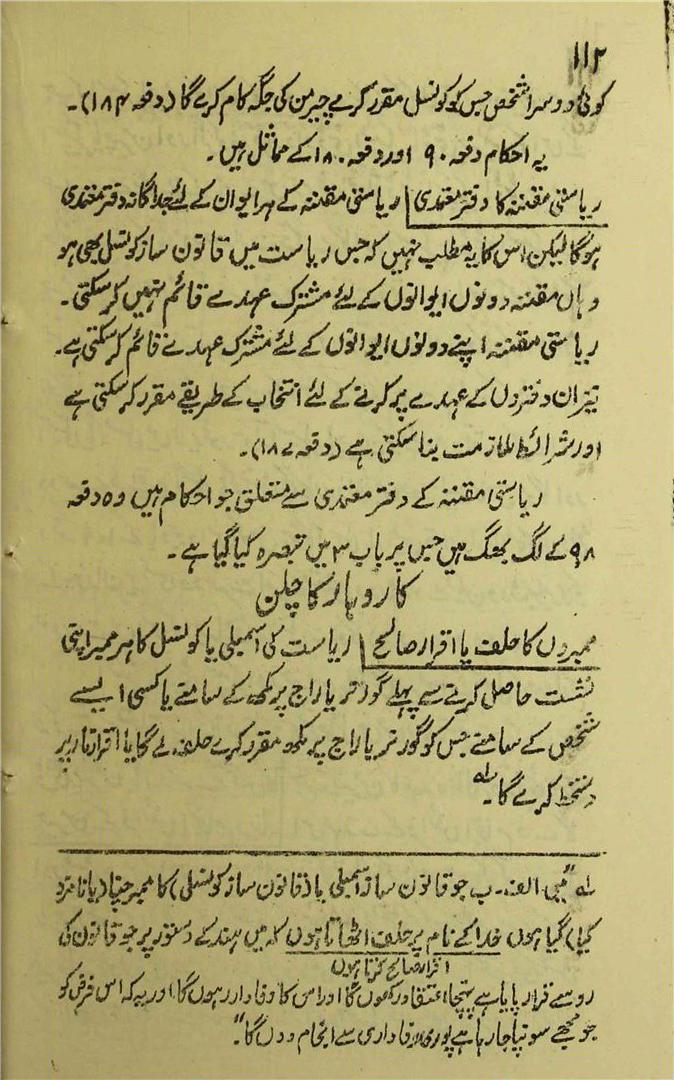 ۱۱۲
کوئی دوسرا شخص جس کو کونسل مقرر کرے چیرمن کی جگہ کام کرے گا (دفعہ ۱۸۴)۔
یہ احکام دفعہ ۹۰ اور دفعہ ۱۸۰ کے مماثل ہیں۔
ریاستی مقننہ کا دفتر معتمدی ریاستی مقننہ کے ہر ایوان کے لئے جداگانہ دفتر معتمدی
ہوگا لیکن اس کا یہ مطلب نہیں کہ جس ریاست میں قانون ساز کونسل بھی ہو
وہاں مقننہ دونوں ایوانوں کے لئے مشترک عہدے قائم نہیں کر سکتی۔
ریاستی مقننہ اپنے دونوں ایوانوں کے لئے مشترک عہدے قائم کر سکتی ہے۔
نیز ان دفتروں کے عہدے پر کرنے کے لئے انتخاب کے طریقے مقرر کر سکتی ہے
اور شرائط ملازمت بنا سکتی ہے (دفعہ ۱۸۷)۔
ریاستی مقننہ کے دفتر معتمدی سے متعلق جو احکام ہیں وہ دفعہ
۹۸ کے لگ بھگ ہیں جس پر باب ۳ میں تبصرہ کیا گیا ہے۔
کاروبار کا چلن
ممبروں کا حلف یا اقرار صالح ریاست کی اسمبلی یا کونسل کا ہر ممبر اپنی
نشست حاصل کرنے سے پہلے گورنر یا راج پرمکھ کے سامنے یا کسی ایسے
شخص کے سامنے جس کو گورنر یا راج پرمکھ مقرر کرے حلف لے گا یا اقرار نامہ پر
دستخط کرے گا۔ لہ
لہ "میں الف۔ ب جو قانون ساز اسمبلی یا (قانون ساز کونسل) کا ممبر چنا (یا نامزد
کیا) گیا ہوں خدا کے نام پر حلف اٹھاتا ہوں کہ میں ہند کے دستور پر جو قانون کی
اقرار صالح کرتا ہوں
رو سے قرار پایا ہے سچا اعتقاد رکھوں گا اور اس کا وفادار رہوں گا اور یہ کہ اس فرض کو
جو مجھے سونپا جا رہا ہے پوری وفاداری سے انجام دوں گا"۔